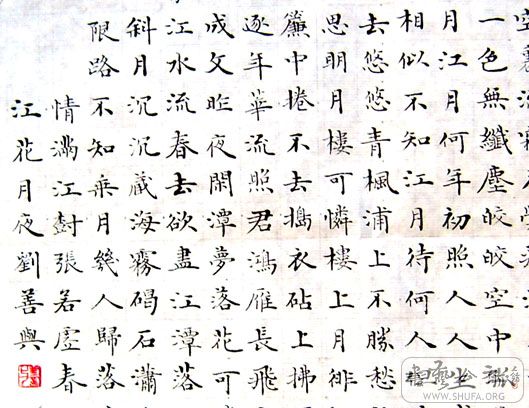 一色無纖塵皎皎空中
月江月何年初照人人
相似不知江月待何人
去悠悠青楓浦上不勝愁
思明月樓可憐樓上月徘
簾中捲不去搗衣砧上拂
逐年華流照君鴻雁長飛
成文昨夜閑潭夢落花可
江水流春去欲盡江潭落
斜月沉沉藏海霧碣石瀟
限路不知乘月幾人歸落
情滿江尌張若虛春
江花月夜劉善與
WWW.SHUFA.ORG